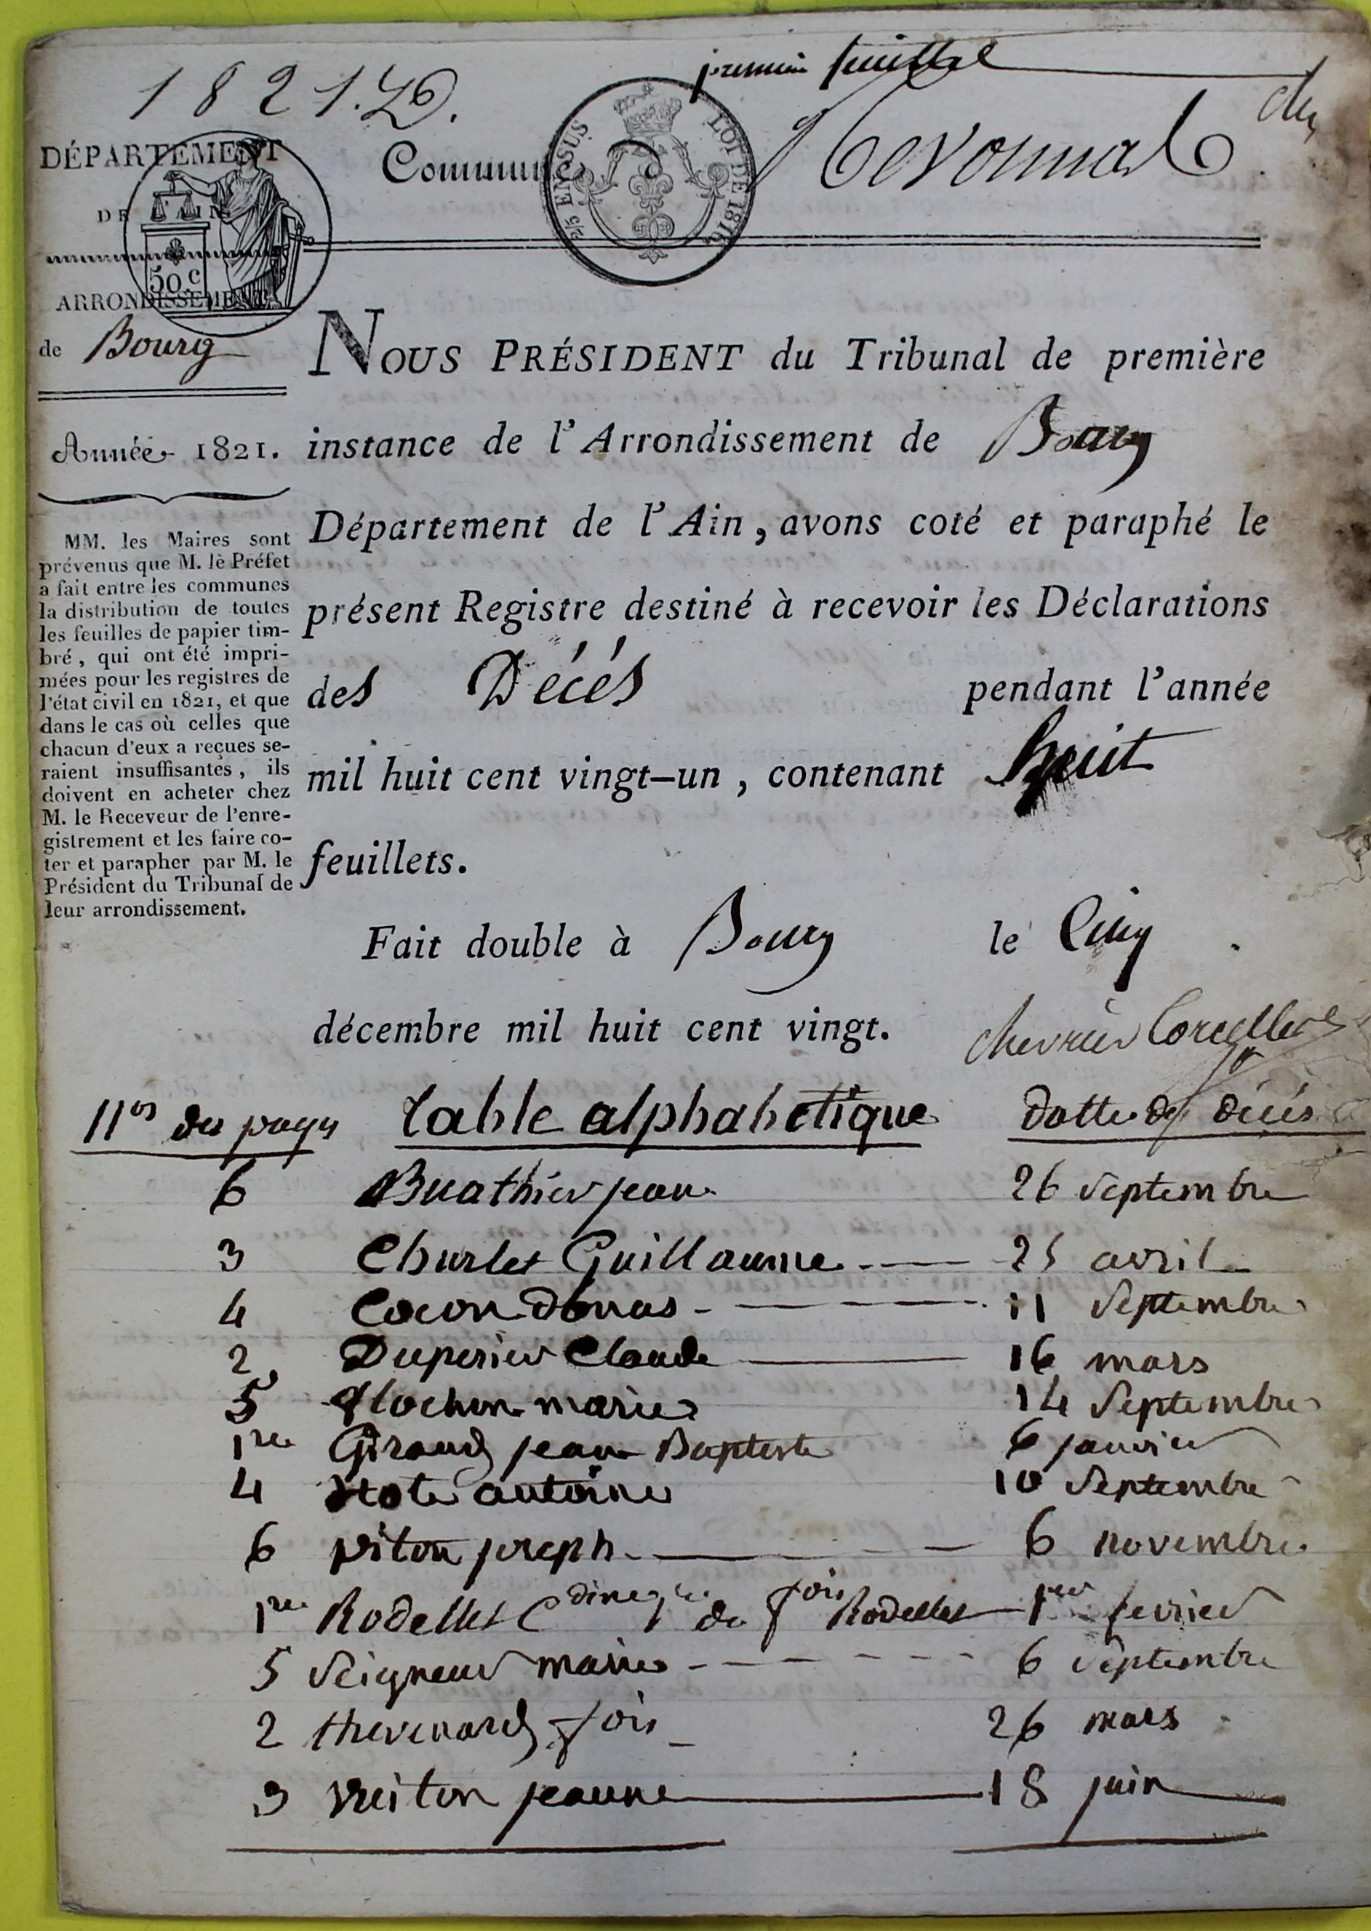 premier feuillet
1821. D.
DÉPARTEMENT
DE L'AIN
ARRONDISSEMENT
de Bourg
50 c
Commune d
2/5 EN SUS
LOI DE 1816
Année 1821.
MM. les Maires sont
prévenus que M. le Préfet
a fait entre les communes
la distribution de toutes
les feuilles de papier tim-
bré, qui ont été impri-
mées pour les registres de
l'état civil en 1821, et que
dans le cas où celles que
chacun d'eux a reçues se-
raient insuffisantes, ils
doivent en acheter chez
M. le Receveur de l'enre-
gistrement et les faire co-
ter et parapher par M. le
Président du Tribunal de
leur arrondissement.
NOUS PRÉSIDENT du Tribunal de première
instance de l'Arrondissement de Bourg
Département de l'Ain, avons coté et paraphé le
présent Registre destiné à recevoir les Déclarations
des Décés pendant l'année
mil huit cent vingt-un, contenant huit
feuillets.
Fait double à Bourg le Cinq
décembre mil huit cent vingt.
chevrier Corcelles
nos des pages table alphabetique datte des décés
6 Buathier jean 26 septembre
3 Charlet Guillaume 25 avril
4 Cocon donas 11 septembre
2 Duperier Claude 16 mars
5 flochon marie 14 septembre
1re Giraud jean Baptiste 6 janvier
4 hote antoine 10 septembre
6 piton joseph 6 novembre
1re Rodellet Cdine fe de fois Rodellet 1er fevrier
5 seigneur marie 6 septembre
2 thevenard fois 26 mars
3 vuiton jeanne 18 juin